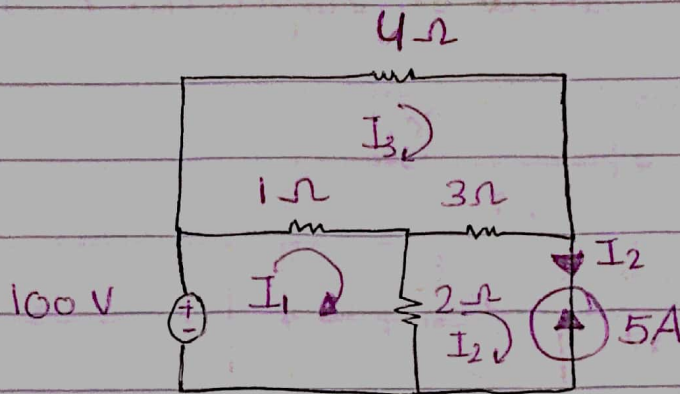 4Ω
I3
1Ω 3Ω
I2
100 V + - I1 2Ω 5A
I2